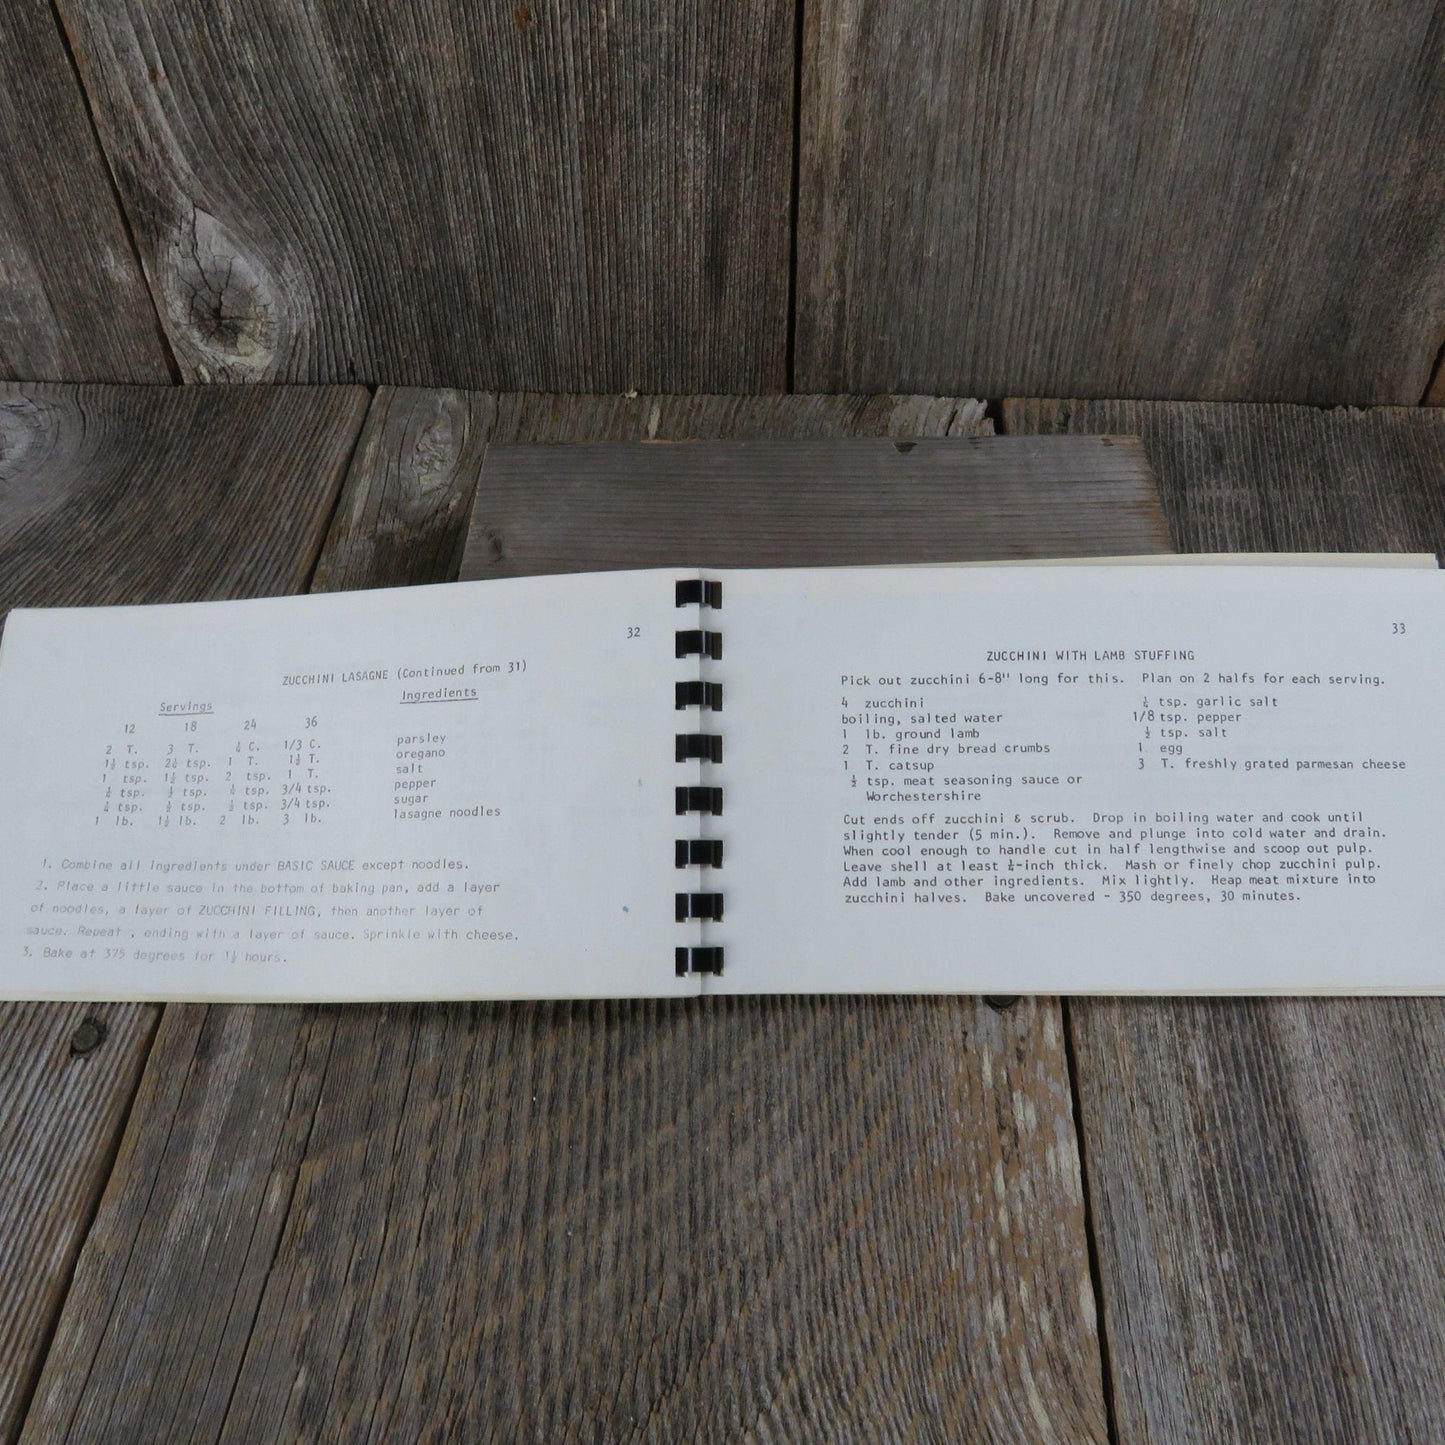 32
ZUCCHINI LASAGNE (Continued from 31)
Servings Ingredients
12 18 24 36
2 T. 3 T. ¼ C. 1/3 C. parsley
1½ tsp. 2¼ tsp. 1 T. 1½ T. oregano
1 tsp. 1½ tsp. 2 tsp. 1 T. salt
tsp. tsp. tsp. 3/4 tsp. pepper
tsp. tsp. tsp. 3/4 tsp. sugar
1 lb. 1½ lb. 2 lb. 3 lb. lasagne noodles
1. Combine all ingredients under BASIC SAUCE except noodles.
2. Place a little sauce in the bottom of baking pan, add a layer
of noodles, a layer of ZUCCHINI FILLING, then another layer of
sauce. Repeat , ending with a layer of sauce. Sprinkle with cheese.
3. Bake at 375 degrees for 1½ hours.
33
ZUCCHINI WITH LAMB STUFFING
Pick out zucchini 6-8" long for this. Plan on 2 halfs for each serving.
4 zucchini
boiling, salted water
1 lb. ground lamb
2 T. fine dry bread crumbs
1 T. catsup
½ tsp. meat seasoning sauce or
Worchestershire
¼ tsp. garlic salt
1/8 tsp. pepper
½ tsp. salt
1 egg
3 T. freshly grated parmesan cheese
Cut ends off zucchini & scrub. Drop in boiling water and cook until
slightly tender (5 min.). Remove and plunge into cold water and drain.
When cool enough to handle cut in half lengthwise and scoop out pulp.
Leave shell at least ¼-inch thick. Mash or finely chop zucchini pulp.
Add lamb and other ingredients. Mix lightly. Heap meat mixture into
zucchini halves. Bake uncovered - 350 degrees, 30 minutes.